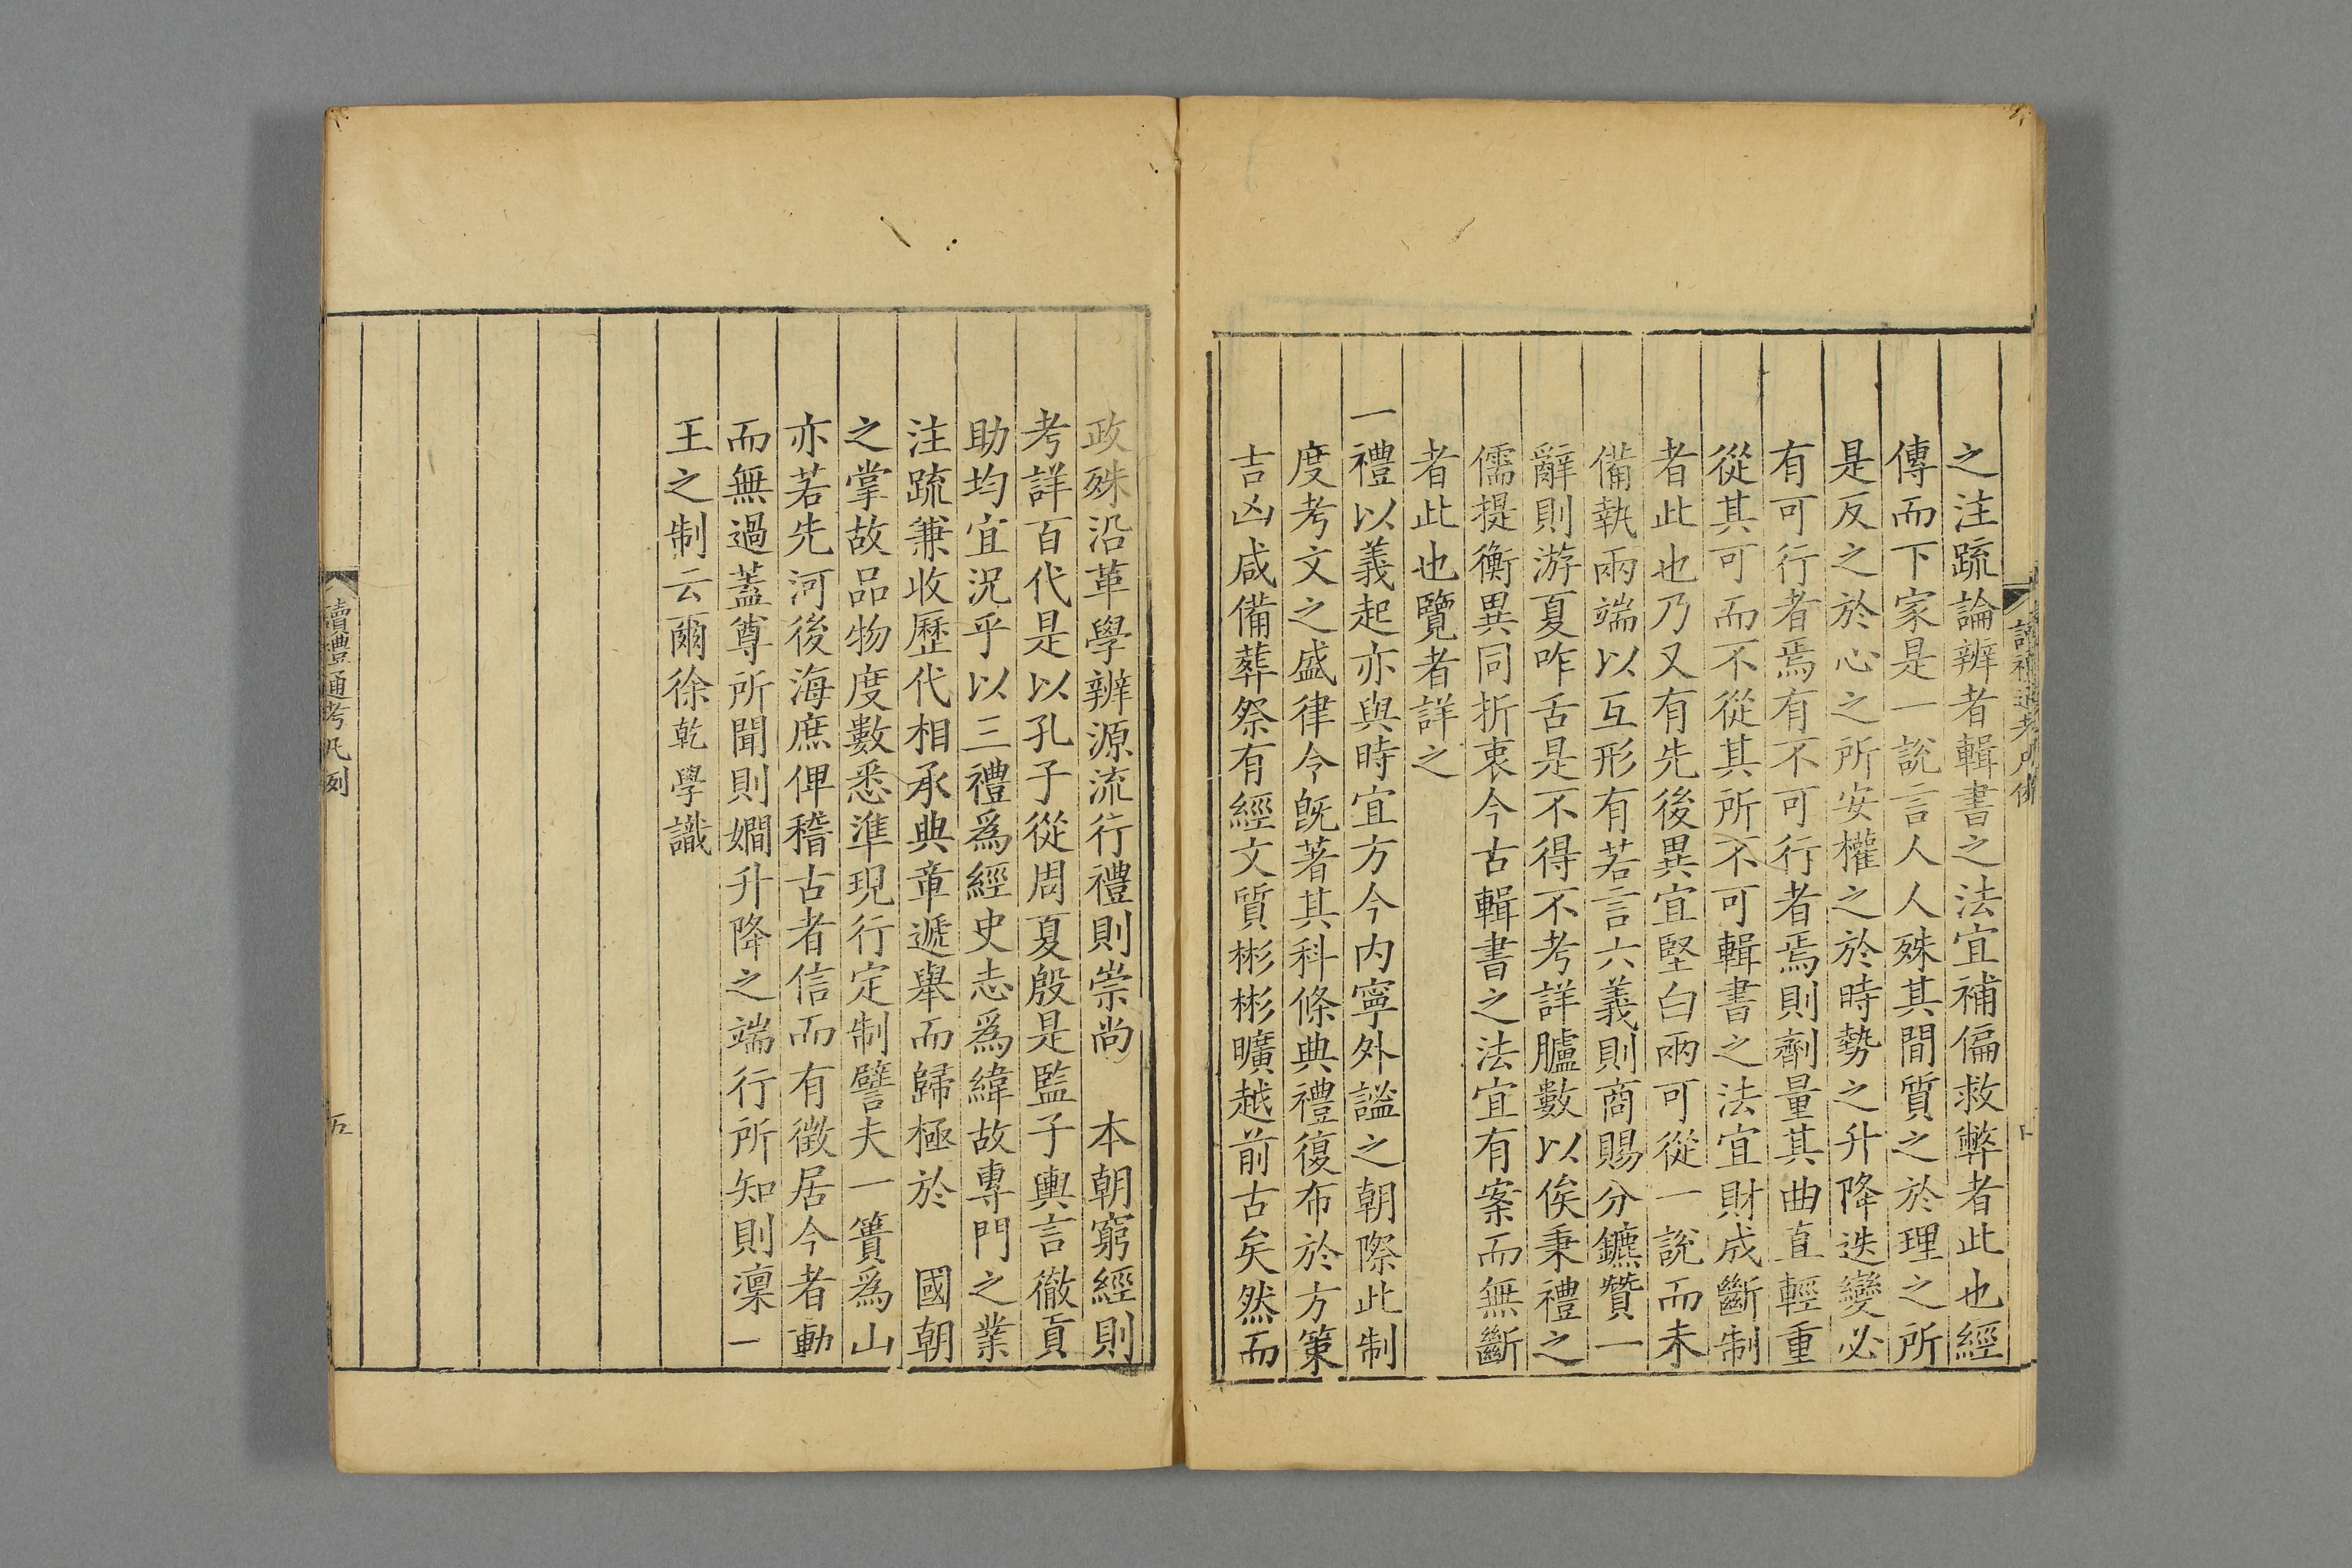 之注疏論辨者輯書之法宜補偏救弊者此也經
傳而下家是一說言人人殊其間質之於理之所
是反之於心之所安權之於時勢之升降迭變必
有可行者焉有不可行者焉則劑量其曲直輕重
從其可而不從其所不可輯書之法宜財成斷制
者此也乃又有先後異宜堅白兩可從一說而未
備執兩端以互形有若言六義則商賜分鑣贊一
辭則游夏咋舌是不得不考詳臚數以俟秉禮之
儒提衡異同折衷今古輯書之法宜有案而無斷
者此也覽者詳之
一禮以義起亦與時宜方今內寧外謐之朝際此制
度考文之盛律令旣著其科條典禮復布於方策
吉凶咸備葬祭有經文質彬彬曠越前古矣然而
政殊沿革學辨源流行禮則崇尚　本朝窮經則
考詳百代是以孔子從周夏殷是監子輿言徹貢
助均宜況乎以三禮爲經史志爲緯故專門之業
注疏兼收歷代相承典章遞舉而歸極於　國朝
之掌故品物度數悉準現行定制譬夫一簣爲山
亦若先河後海庶俾稽古者信而有徵居今者動
而無過蓋尊所聞則嫺升降之端行所知則凜一
王之制云爾徐乾學識
讀禮通考凡例
五